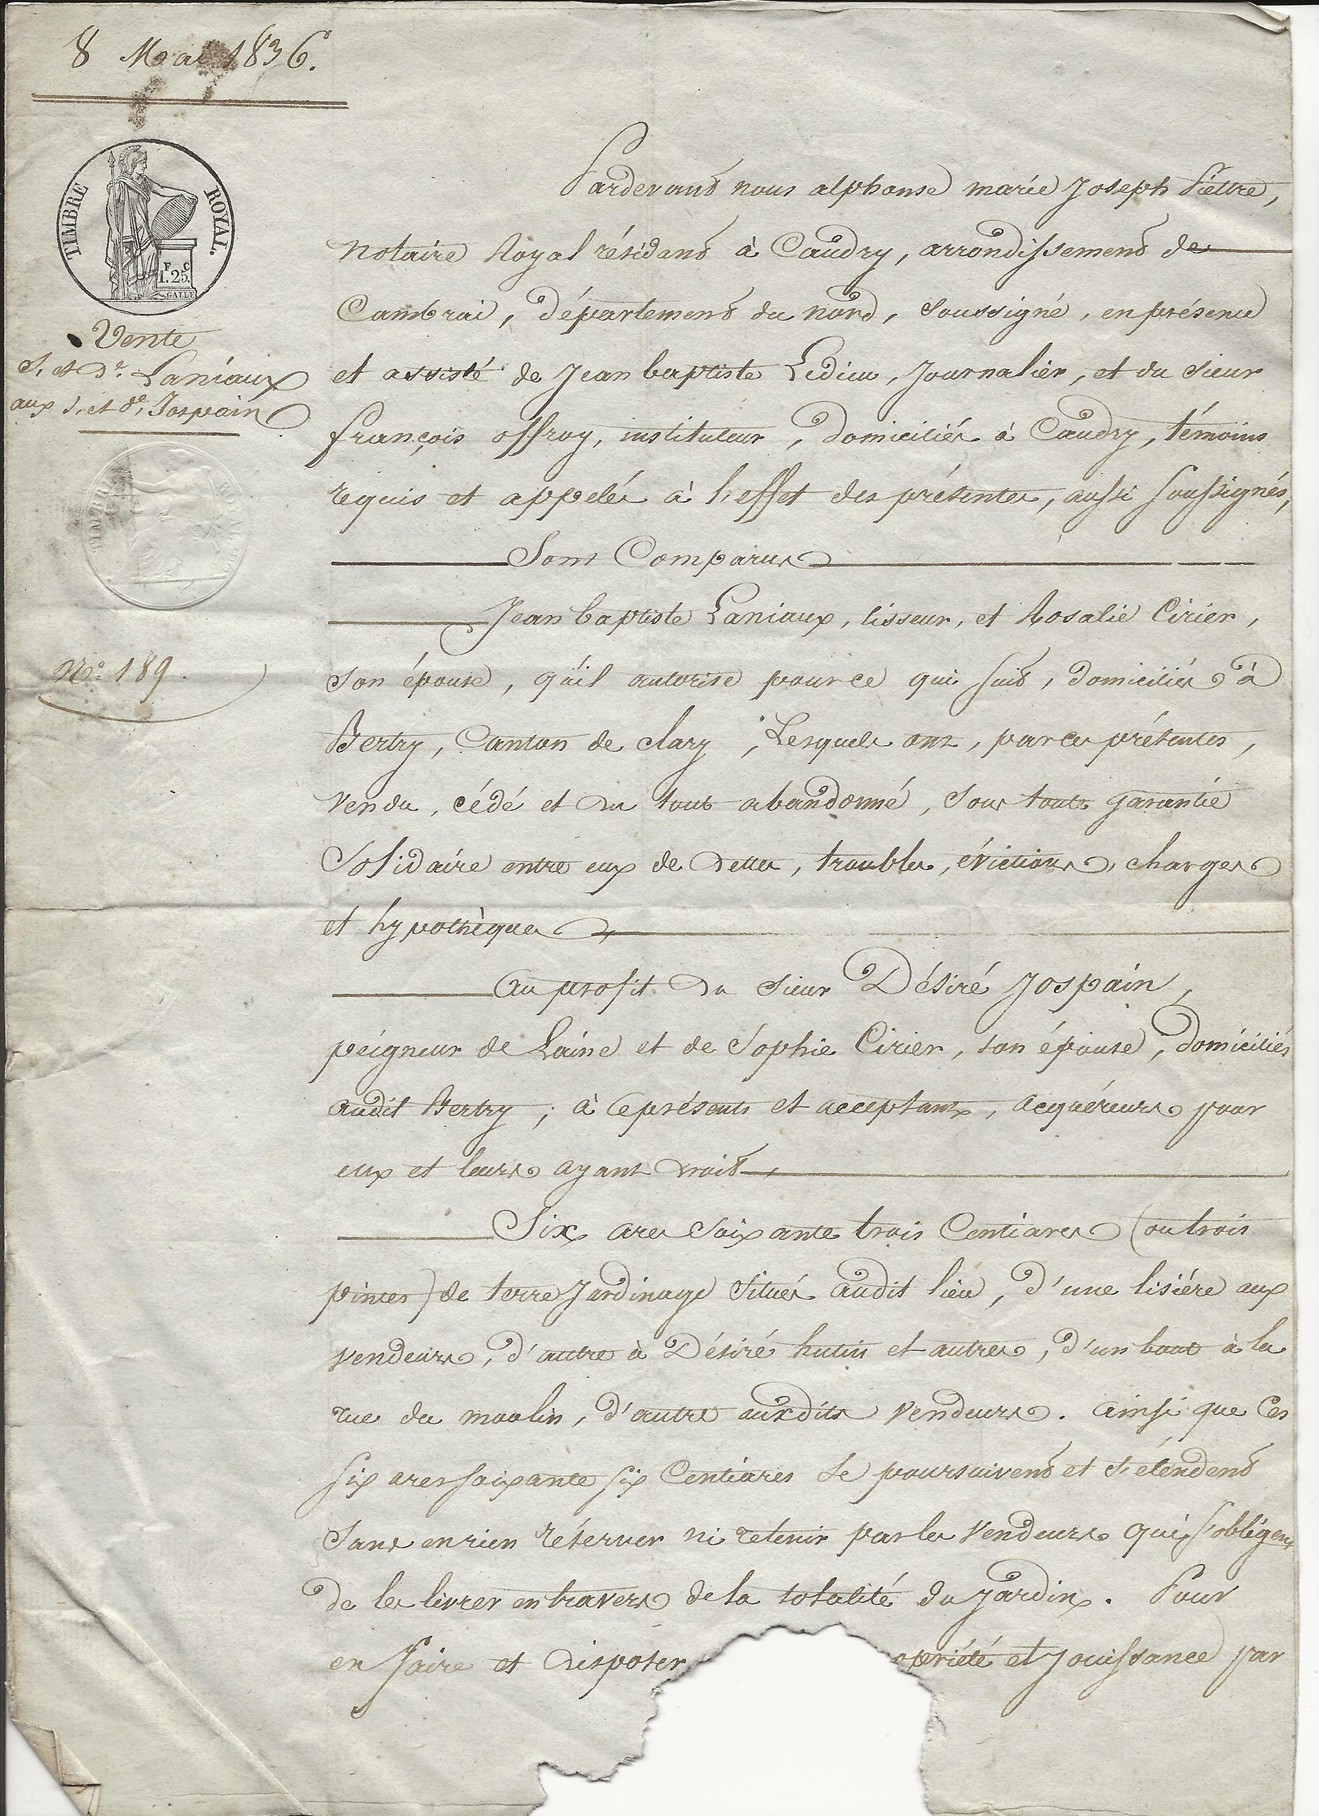 8 Mai 1836.
TIMBRE ROYAL.
F. C
1.25.
Vente
S. et De. Laniaux
aux S. et de. Jospain
N°. 189.
Pardevant nous alphonse marie Joseph Piettre,
notaire Royal résidant à Caudry, arrondissement de
Cambrai, département du nord, soussigné, en présence
et assisté de Jean baptiste Ledieu, Journalier, et du Sieur
françois offroy, instituteur, domiciliés à Caudry, témoins
requis et appelés à l'effet des présentes, aussi soussignés,
Sont Comparus
Jean baptiste Laniaux, tisseur, et Rosalie Cirier,
son épouse, qu'il autorise pour ce qui suit, domiciliés à
Bertry, Canton de clary ; Lesquels ont, par ces présentes,
vendu, cédé et du tout abandonné, sous toute garantie
Solidaire entre eux de dettes, troubles, évictions, charges
et hypothèques
Au profit du sieur Désiré Jospain,
peigneur de Laine et de Sophie Cirier, son épouse, domiciliés
audit Bertry ; à ce présents et acceptants, acquéreurs pour
eux et leurs ayant droit,
Six ares soixante trois Centiares (ou trois
pintes) de terre Jardinage situés audit lieu, d'une lisière aux
vendeurs, d'autre à Désiré hutin et autres, d'un bout à la
rue du moulin, d'autre auxdits vendeurs. Ainsi que Ces
six ares soixante six Centiares se poursuivent et s'étendent
Sans en rien réserver ni retenir par les vendeurs qui s'obligent
de les livrer en travers de la totalité du Jardin. Pour
en faire et disposer opriété et Jouissance par